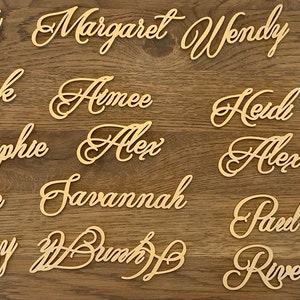 Margaret Wendy
Aimee Heidi
phie Alex Alex
Savannah
Paul
River